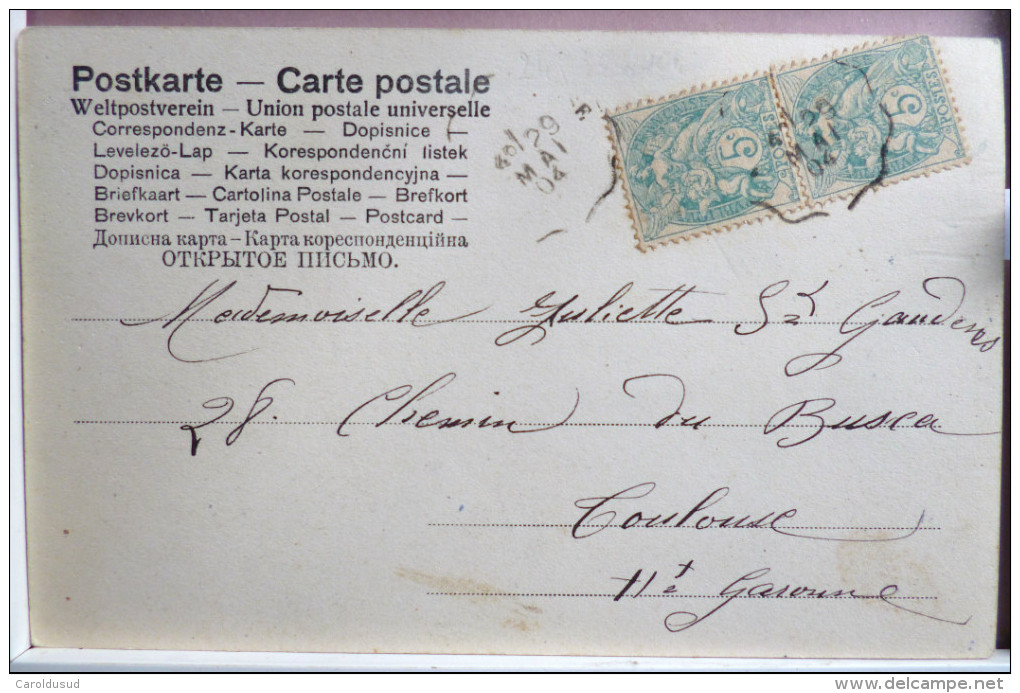 Postkarte — Carte postale
Weltpostverein — Union postale universelle
Correspondenz-Karte — Dopisnice —
Levelező-Lap — Korespondenční listek
Dopisnica — Karta korespondencyjna —
Briefkaart — Cartolina Postale — Brefkort
Brevkort — Tarjeta Postal — Postcard —
Дописна карта — Карта кореспонденційна
ОТКРЫТОЕ ПИСЬМО.
29
MAI
04
29
MAI
04
5c
5c
POSTES
Mademoiselle Juliette St Gaudens
28. Chemin du Busca
Toulouse
Hte Garonne
Caroldusud
delcampe.net